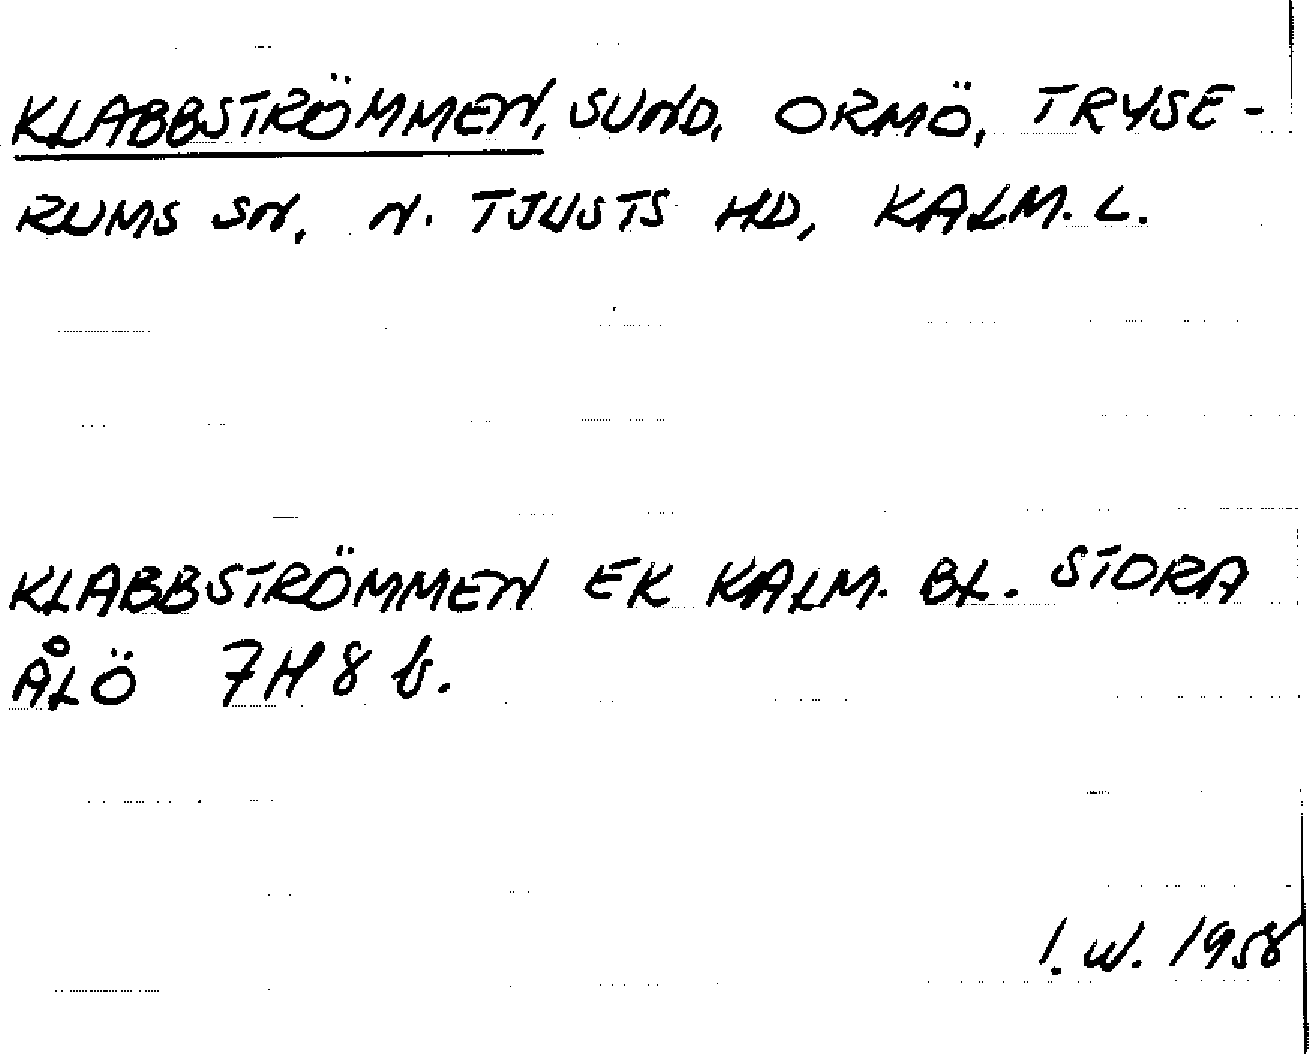 KLABBSTRÖMMEN, SUND, ORMÖ, TRYSE-
RUMS SN, N. TJUSTS HD, KALM. L.
KLABBSTRÖMMEN EK KALM. BL. STORA
ÅLÖ 7H 8 b.
I. W. 1958